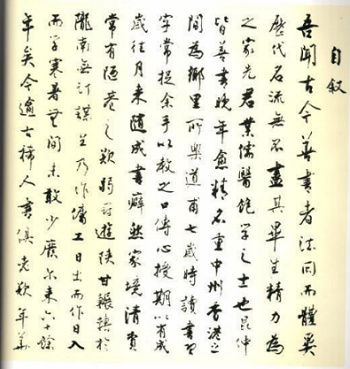 自叙
吾聞古今善書者法同而體異
歷代名流無不盡其畢生精力為
之家先君業儒醫飽學之士也昆仲
皆善書晚年愈精名重中州香港之
間為鄉里所樂道甫七歲時讀書習
字常捉余手以教之口傳心授期以有成
歲往月來隨成書癖然家境清貧
常有陋巷之歎弱冠遊陝甘輾轉於
隴南無計謀生乃作傭工日出而作日入
而學寒暑無間未敢少廢尔来六十餘
年矣今逾古稀人書俱老歎年華